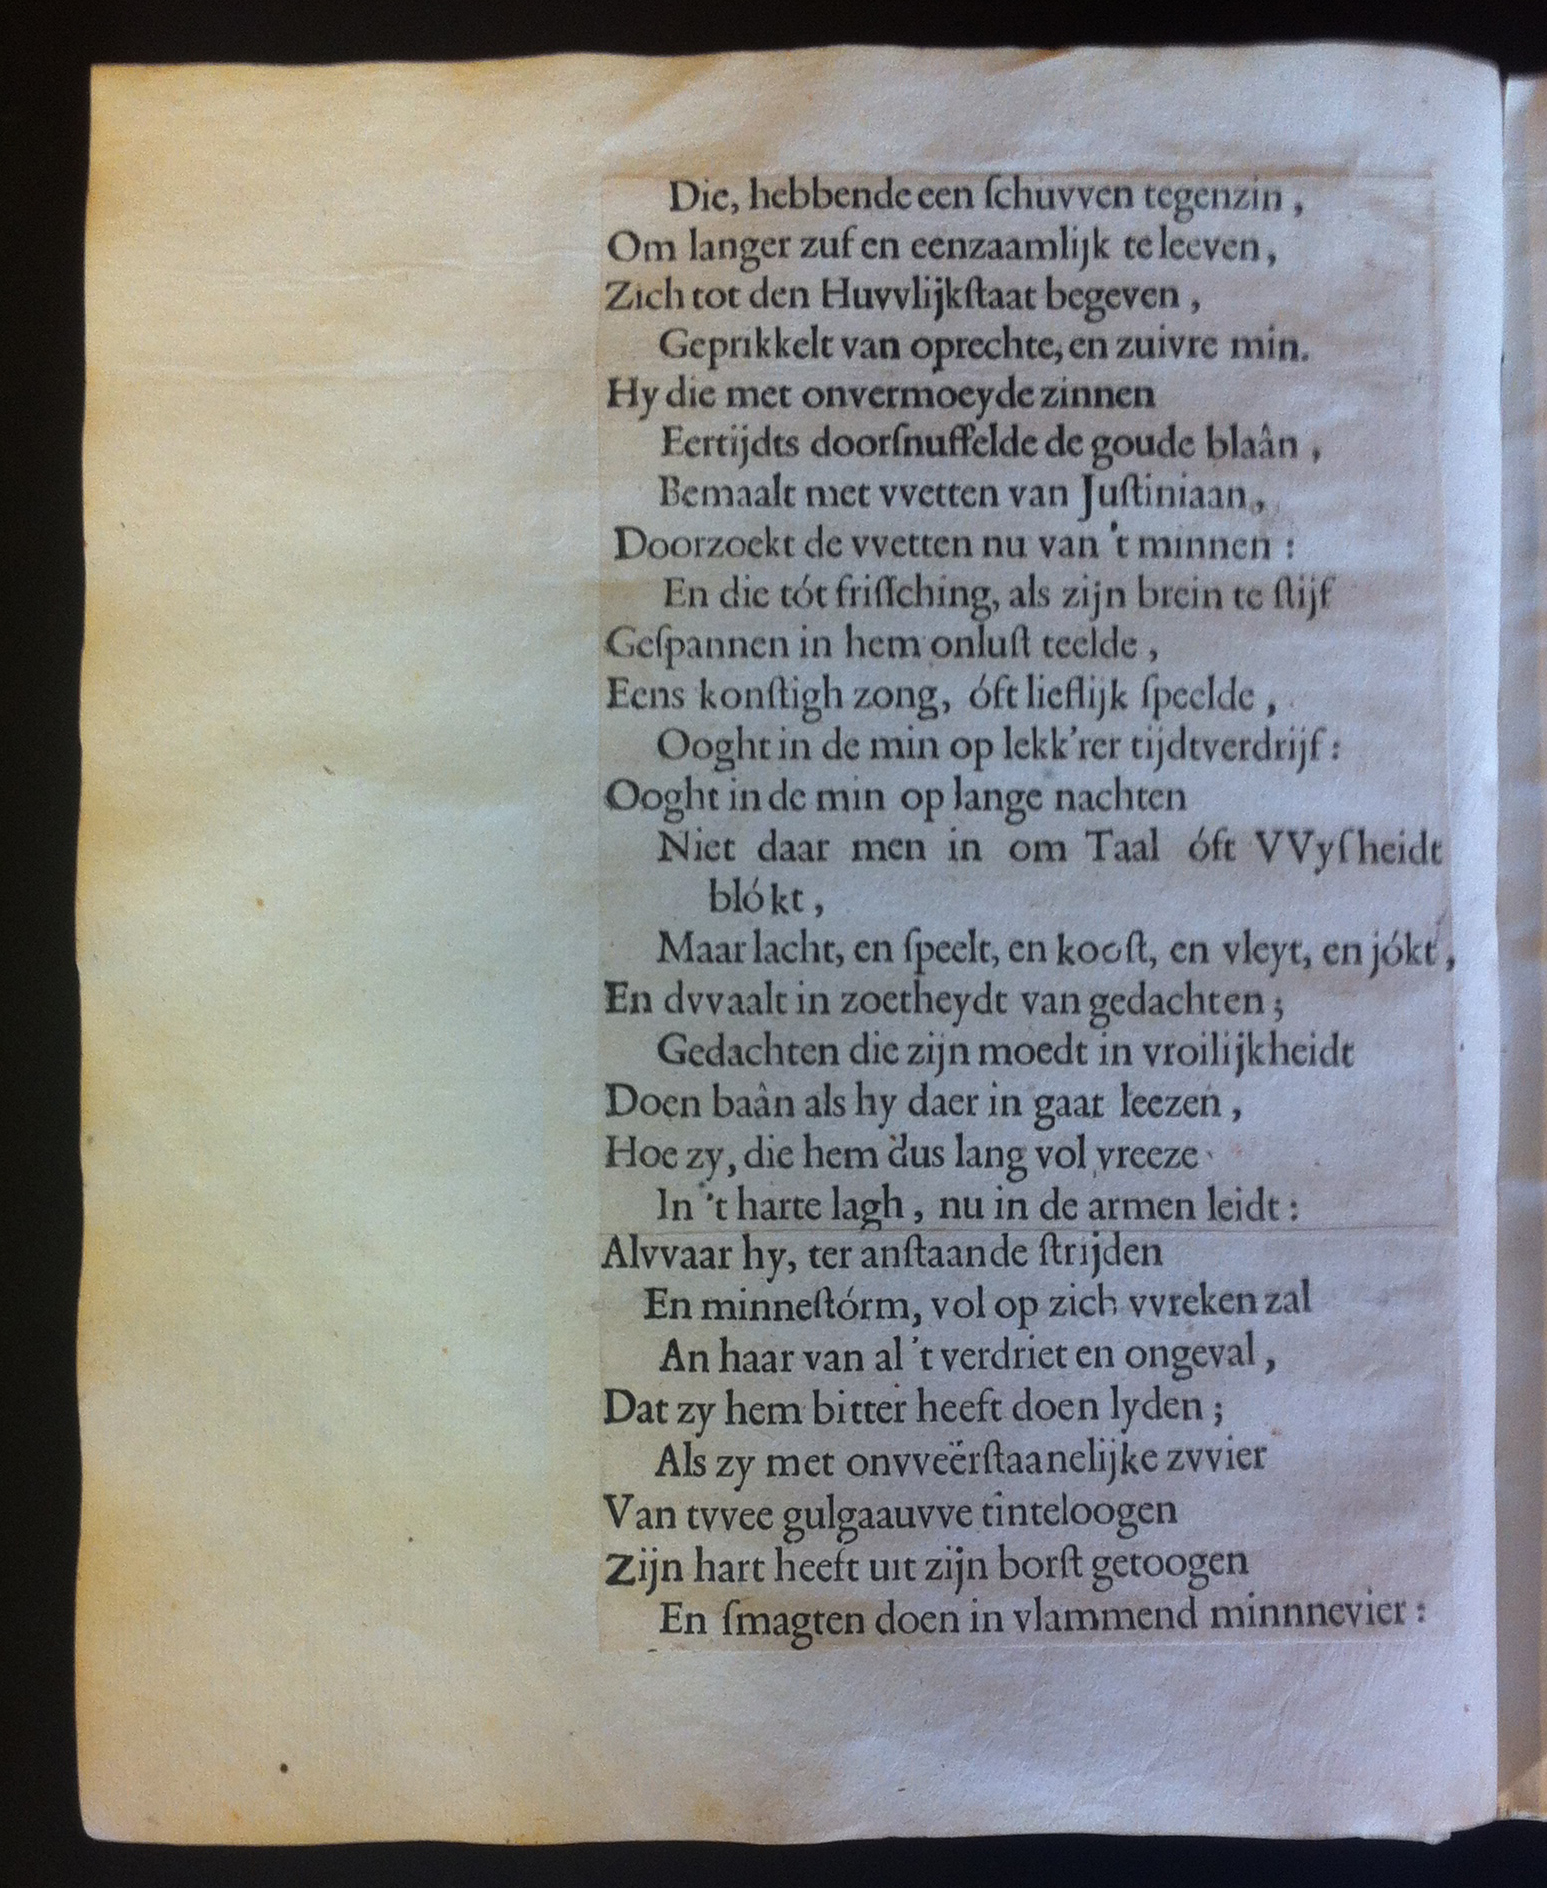 Die, hebbende een ſchuvven tegenzin,
Om langer zuf en eenzaamlijk te leeven,
Zich tot den Huvvlijkſtaat begeven,
Geprikkelt van oprechte, en zuivre min.
Hy die met onvermoeyde zinnen
Eertijdts doorſnuffelde de goude blaân,
Bemaalt met vvetten van Juſtiniaan,
Doorzoekt de vvetten nu van 't minnen:
En die tót friſſching, als zijn brein te ſtijf
Geſpannen in hem onluſt teelde,
Eens konſtigh zong, óft lieflijk ſpeelde,
Ooght in de min op lekk'rer tijdtverdrijf:
Ooght in de min op lange nachten
Niet daar men in om Taal óft VVyſheidt
blókt,
Maar lacht, en ſpeelt, en kooſt, en vleyt, en jókt,
En dvvaalt in zoetheydt van gedachten;
Gedachten die zijn moedt in vroilijkheidt
Doen baân als hy daer in gaat leezen,
Hoe zy, die hem dus lang vol vreeze
In 't harte lagh, nu in de armen leidt:
Alvvaar hy, ter anſtaande ſtrijden
En minneſtórm, vol op zich vvreken zal
An haar van al 't verdriet en ongeval,
Dat zy hem bitter heeft doen lyden;
Als zy met onvveërſtaanelijke zvvier
Van tvvee gulgaauvve tinteloogen
Zijn hart heeft uit zijn borſt getoogen
En ſmagten doen in vlammend minnnevier: